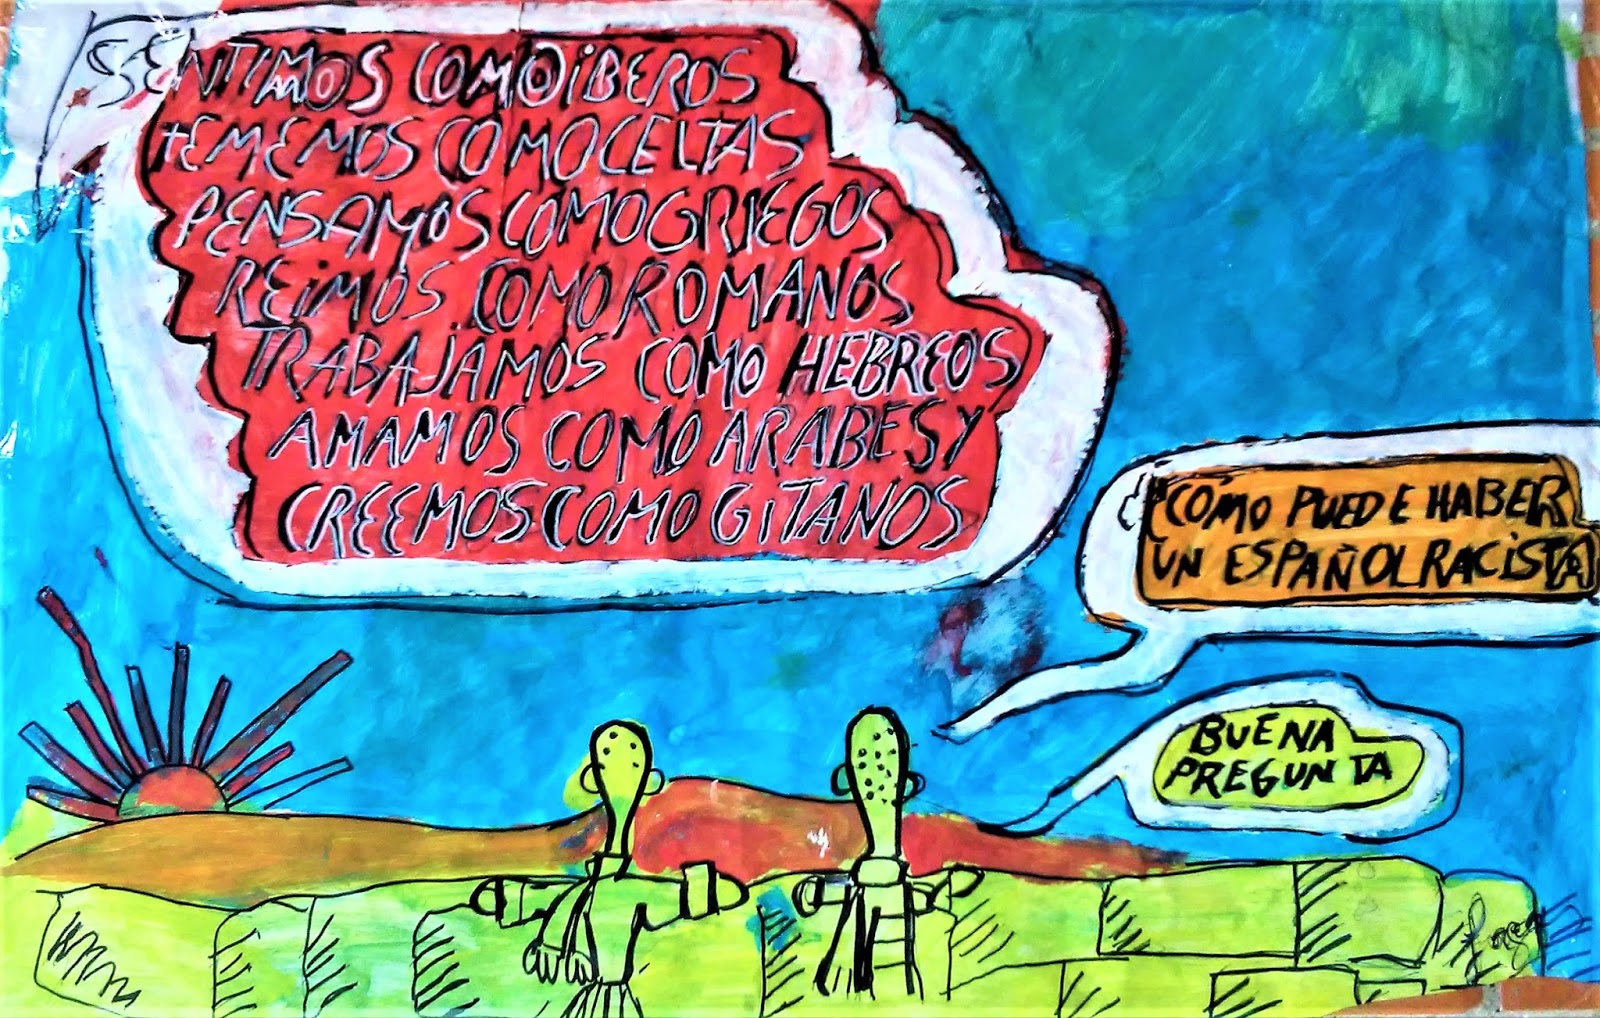 SENTIMOS COMO iBEROS
tEMEMOS COMO CELTAS
PENSAMOS COMO GRIEGOS
REiMOS COMO ROMANOS
TRABAJAMOS COMO HEBREOS
AMAMOS COMO ARABES Y
CREEMOS COMO GiTANOS
COMO PUEDE HABER
UN ESPAÑOL RACiSTA
BUENA
PREGUNTA